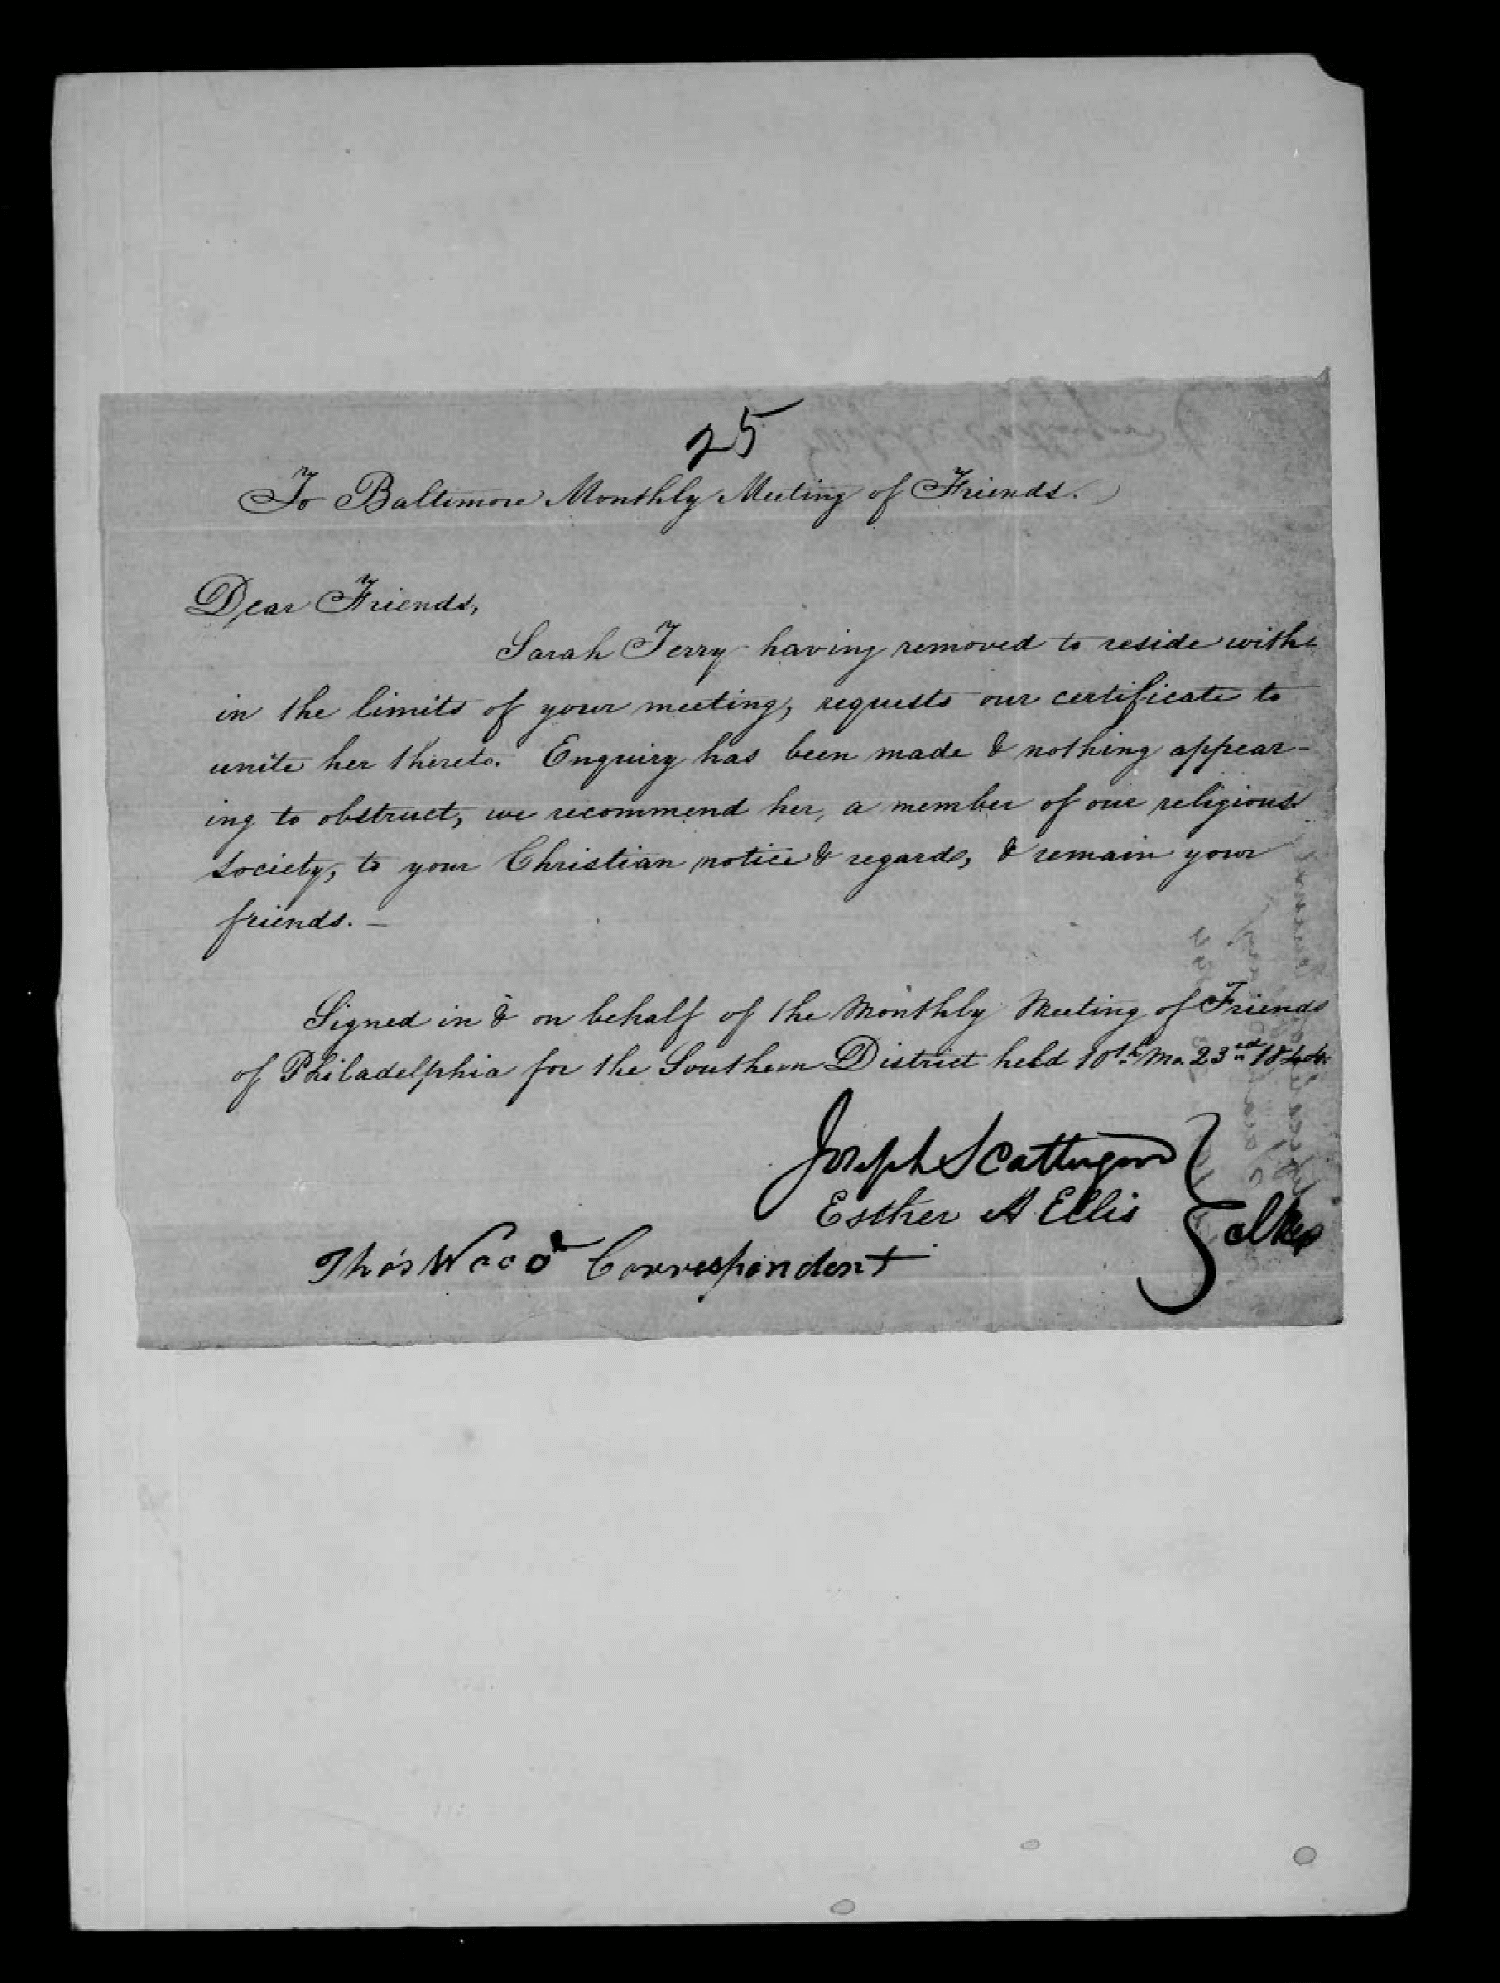 25
To Baltimore Monthly Meeting of Friends.
Dear Friends,
Sarah Terry having removed to reside with-
in the limits of your meeting, requests our certificate to
unite her thereto. Enquiry has been made & nothing appear-
ing to obstruct, we recommend her, a member of our religious
society, to your Christian notice & regard, & remain your
friends. —
Signed in & on behalf of the Monthly Meeting of Friends
of Philadelphia for the Southern District held 10th Mo. 23rd 1844.
Joseph Scattergood
Esther A Ellis
Clks
Thos Wood Correspondent